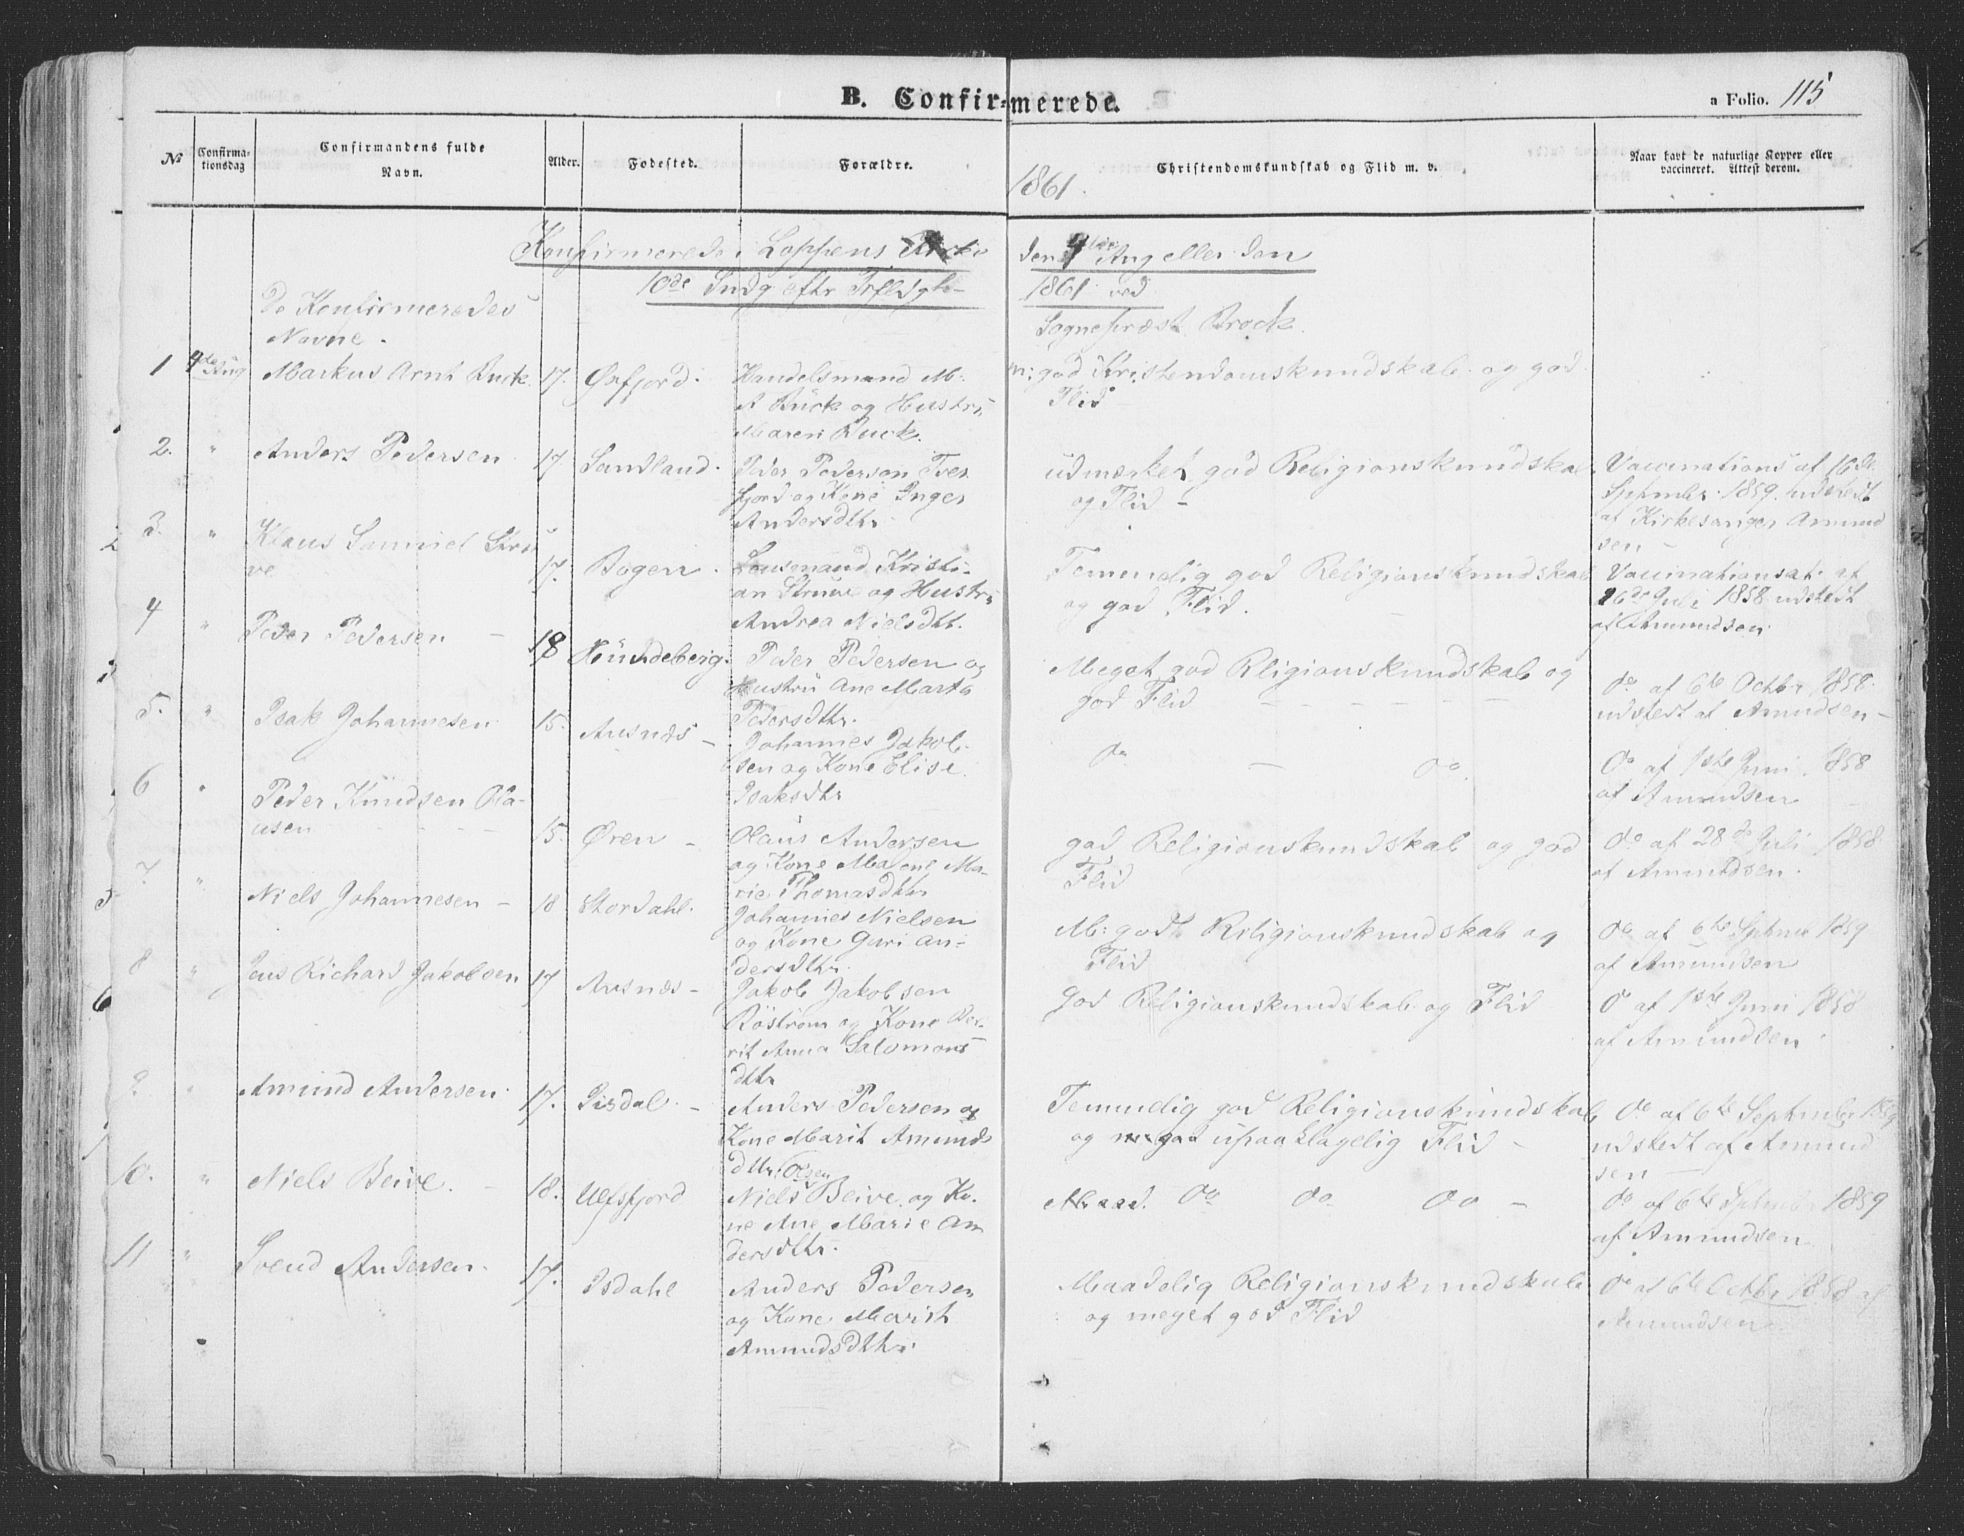 B. Confirmerede.
a Folio. 115
No
Confirma-
tionsdag
Confirmandens fulde
Navn.
Alder.
Fodested.
Forældre.
1861.
Christendomskundskab og Flid m. v.
Naar havt de naturlige Kopper eller
vaccineret. Attest derom.
Konfirmerede i Loppens Kirke den 4de Aug eller den
10de Sndg eftr Trefldgh- 1861 ved
Sognepræst Brock.
De Konfirmeredes
Navne.
1 4de Aug Markus Arnt Buck 17. Øxfjord.
Handelsmand M.
A Buck og Hustru
Maren Buck.
M: god Kristendomskundskab og god
Flid
2. " Anders Pedersen 17 Sandland.
Peder Pederson Tver
fjord og Kone Inger
Andersdtr.
udmærket god Religionskundskab
og Flid -
Vaccinations af 16de
Sptmber 1859 udstedt
af Kirkesanger Amund
sen -
3. " Klaus Samuel Stru
ve 17. Bogen.
Lensmand Kristi-
an Struve og Hustru
Andrea Nielsdtr.
Temmelig god Religionskundskab
og god Flid.
Vaccinationsat. af
26de Juli 1858 udstedt
af Amundsen.
4 " Peder Pedersen - 18
Peder Pedersen og
Hustru Ane Marta
Pedersdtr.
Meget god Religionskundskab og
god Flid
do af 6te Octbr 1858.
udstedt af Amudsen -
5. " Isak Johannesen 15. Arsnæs -
Johannes Jakob-
sen og Kone Elise
Isaksdtr
do - do
do af 1ste Juni 1858
af Amundsen
6 " Peder Knudsen Ola-
usen 15. Øren -
Olaus Andersen
og Kone Malene Ma-
rie Thomasdtr
god Religionskundskab og god
Flid
do af 28de Juli 1858
af Amundsen.
7. " Niels Johannesen - 18 Stordahl.
Johannes Nielsen
og Kone Guri An-
dersdtr.
M: godt Religionskundskab og
Flid
do af 6te Sptmbr 1859
af Amundsen
8 " Jens Richard Jakobsen 17 Arsnæs -
Jakob Jakobsen
og Kone Ber-
rit Anna Salomons
dtr
God Religionskundskab og Flid
do af 1ste Juni 1858
af Amundsen
9. " Amund Andersen. 17. Isdal. -
Anders Pedersen og
Kone Marit Amunds
dtr.
Temmelig god Religionskundskab
og upaaklagelig Flid -
do af 6te Septmber 1859
udstedt af Amund
sen
10. " Niels Beive. - 18. Ulfsfjord
Olsen
Niels Beive og Ko-
ne Ane Marie An
dersdtr.
Maad. do do do -
do af 6te Sptmbr 1859
af Amundsen
11 " Svend Andersen. 17. Isdahl
Anders Pedersen
og Kone Marit
Amundsdtr.
Maadelig Religionskundskab
og meget god Flid
do af 6te Octbr 1858 af
Amundsen